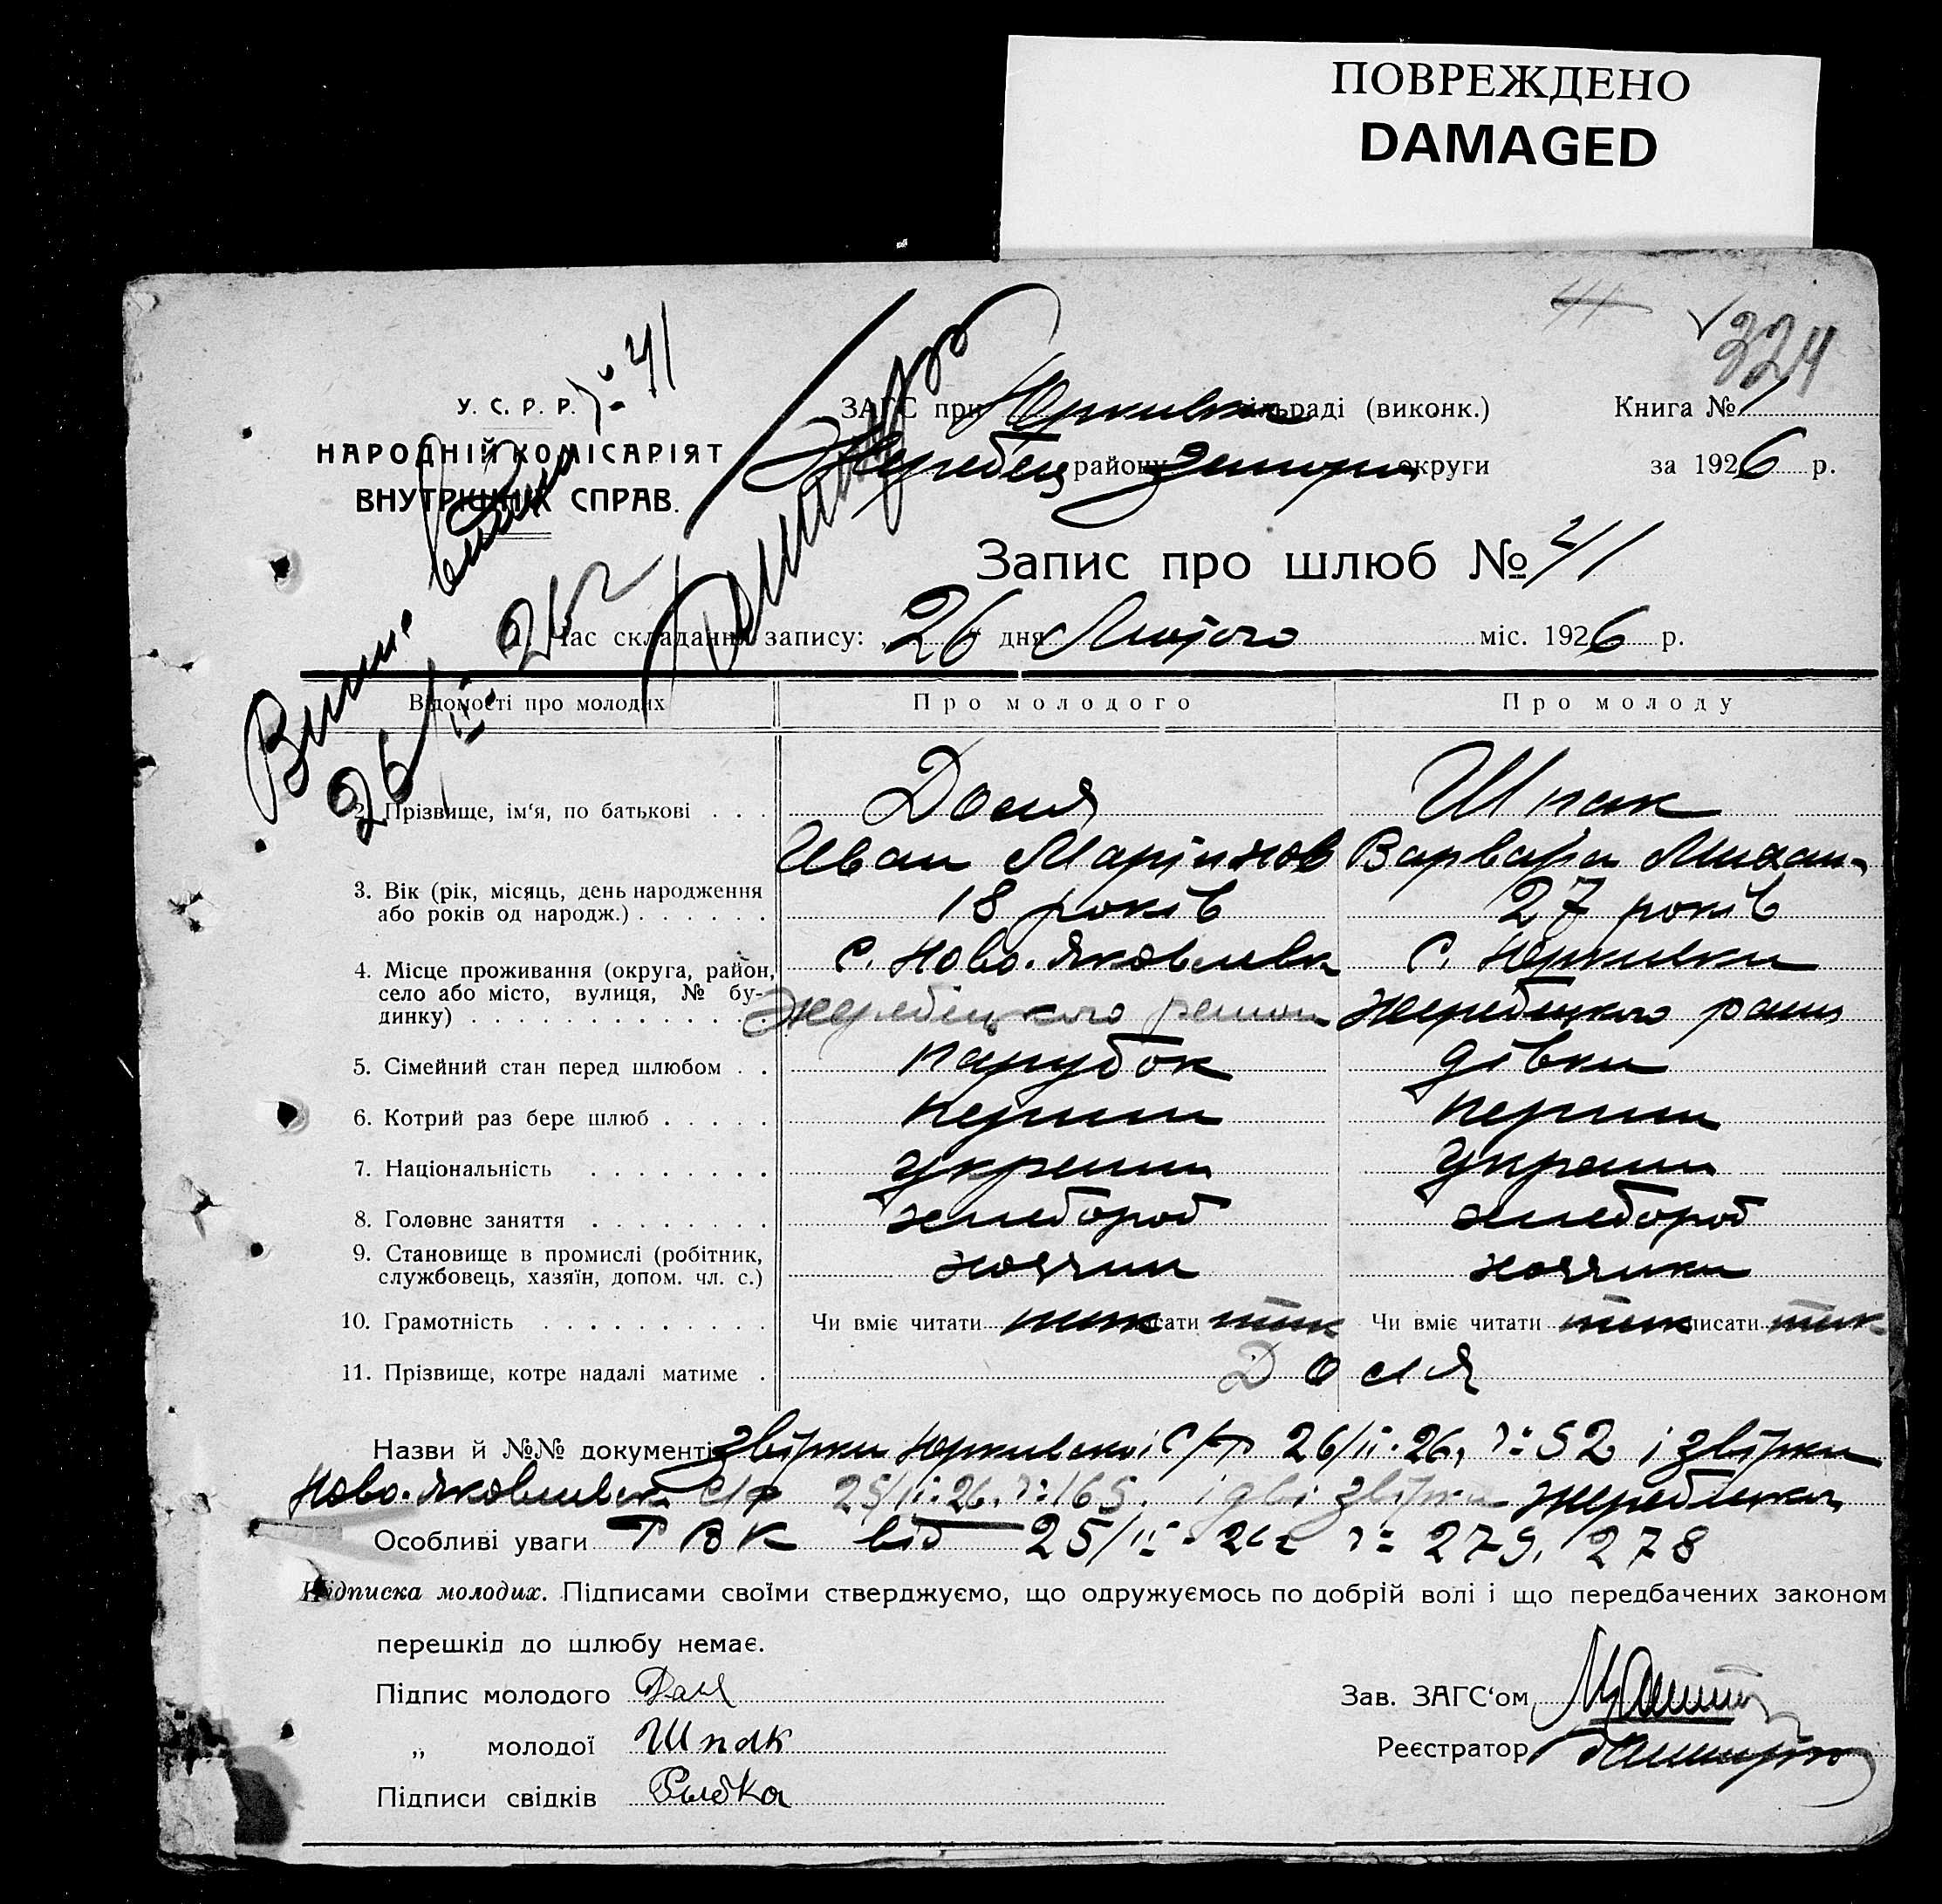 ПОВРЕЖДЕНО
DAMAGED
324
У. С. Р. Р.
НАРОДНІЙ КОМІСАРІЯТ
ВНУТРІШНІХ СПРАВ.
№ 41
26/II - 26 г
ЗАГС при Юркивск сільраді (виконк.) Книга № 1
Жеребец району Запорож округи за 1926 р.
Запис про шлюб № 41
Час складання запису: „26" дня Лютого міс. 1926 р.
Відомості про молодих Про молодого Про молоду
2. Прізвище, ім'я, по батькові . . . Доля Шпак
Иван Маріянов Варвара Михаи-
3. Вік (рік, місяць, день народження
або років од народж.) . . . . . . 18 років 27 років
4. Місце проживання (округа, район, с. Ново-Яковливка с. Юркивки
село або місто, вулиця, № бу-
динку) . . . . . . . . . . . . . Жеребецкого Жеребецкого
5. Сімейний стан перед шлюбом . . парубок дівка
6. Котрий раз бере шлюб . . . . .
7. Національність . . . . . . . . украин украин
8. Головне заняття . . . . . . . . хлебороб хлебороб
9. Становище в промислі (робітник,
службовець, хазяїн, допом. чл. с.)
10. Грамотність . . . . . . . . . . Чи вміє читати так писати так Чи вміє читати так писати так
11. Прізвище, котре надалі матиме . Доля
Назви й №№ документів звірки Юркивскоі с/р 26/II-26, № 52 і звірки
Ново-Яковливск с/р 25/II-26, № 165. і дві звірки Жеребецкого
Особливі уваги РВК від 25/II - 26 г № 279, 278
Підписка молодих. Підписами своїми стверджуємо, що одружуємось по добрій волі і що передбачених законом
перешкід до шлюбу немає.
Підпис молодого Даля Зав. ЗАГС'ом
„ молодої Шпак Реєстратор
Підписи свідків Рыбка